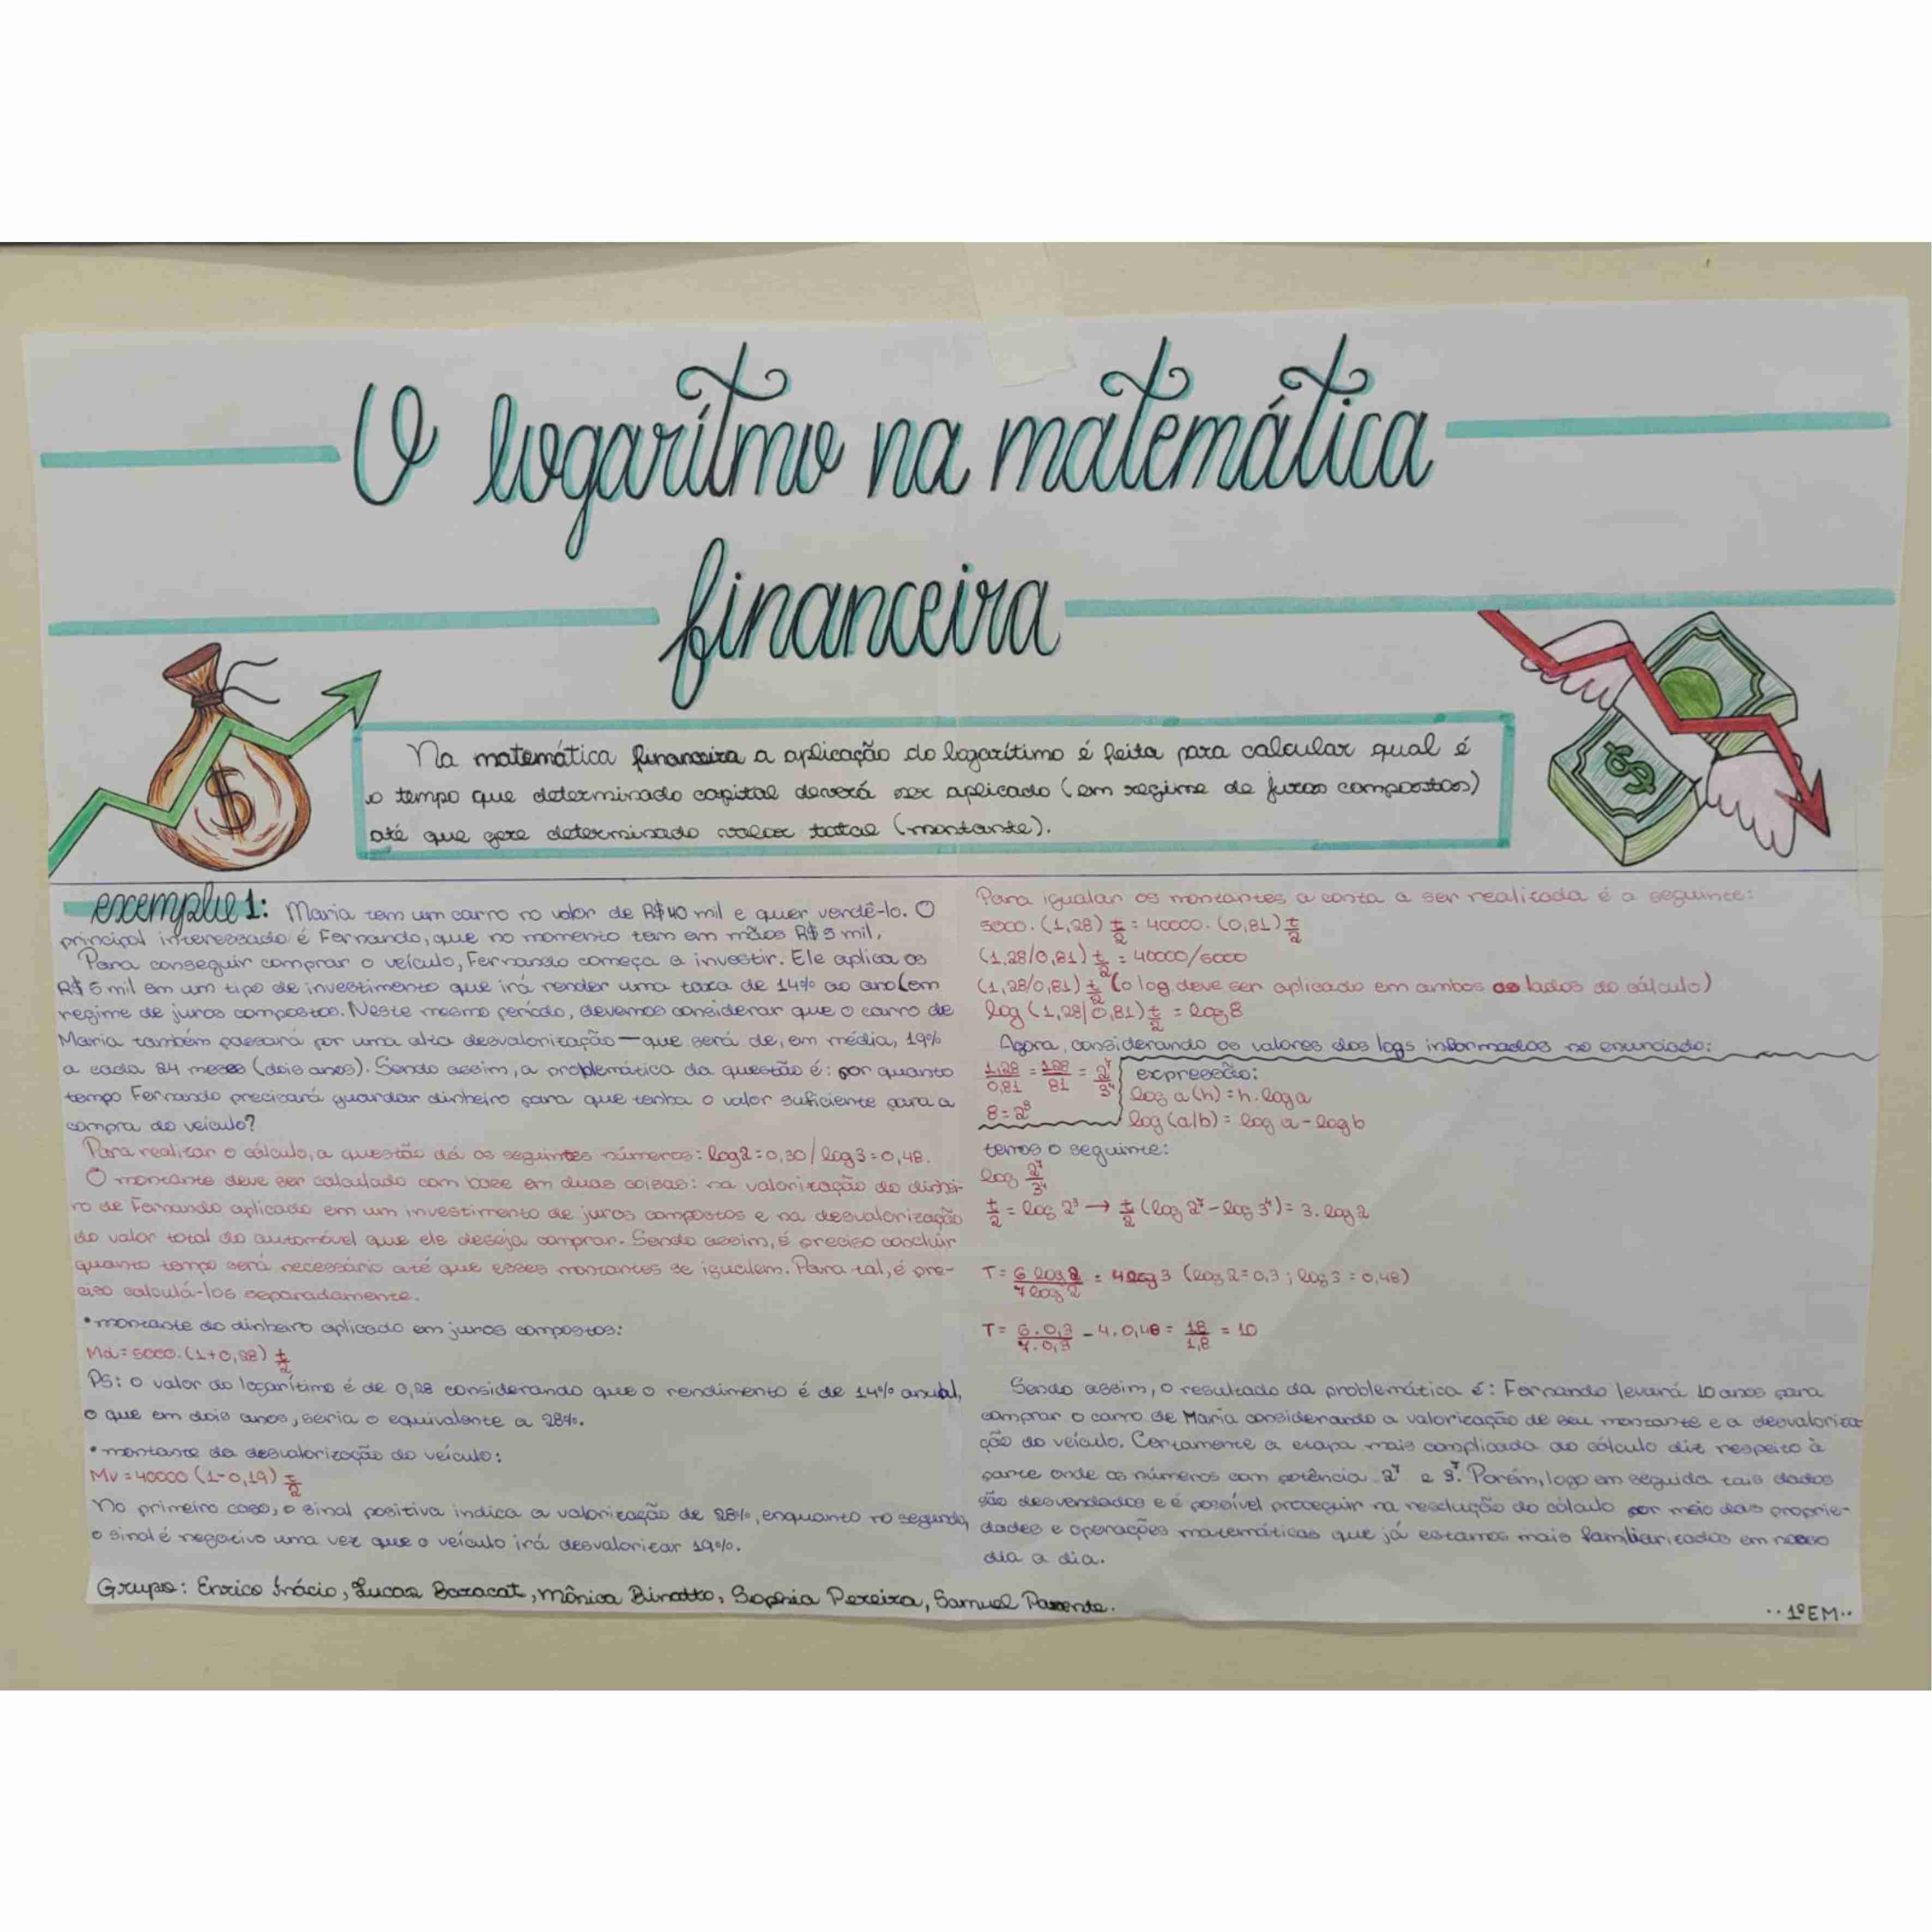 O logarítmo na matemática
financeira
Na matemática financeira a aplicação do logarítimo é feita para calcular qual é
o tempo que determinado capital deverá ser aplicado (em regime de juros compostos)
até que gere determinado valor total (montante).
exemplo 1: Maria tem um carro no valor de R$40 mil e quer vendê-lo. O
principal interessado é Fernando, que no momento tem em mãos R$ 5 mil.
Para conseguir comprar o veículo, Fernando começa a investir. Ele aplica os
R$ 5 mil em um tipo de investimento que irá render uma taxa de 14% ao ano (em
regime de juros compostos. Neste mesmo período, devemos considerar que o carro de
Maria também passará por uma alta desvalorização — que será de, em média, 19%
a cada 24 meses (dois anos). Sendo assim, a problemática da questão é: por quanto
tempo Fernando precisará guardar dinheiro para que tenha o valor suficiente para a
compra do veículo?
Para realizar o cálculo, a questão dá os seguintes números: log2=0,30 / log3=0,48.
O montante deve ser calculado com base em duas coisas: na valorização do dinhei-
ro de Fernando aplicado em um investimento de juros compostos e na desvalorização
do valor total do automóvel que ele deseja comprar. Sendo assim, é preciso concluir
quanto tempo será necessário até que esses montantes se igualem. Para tal, é pre-
ciso calculá-los separadamente.
• montante do dinheiro aplicado em juros compostos:
Md=5000.(1+0,28) t/2
PS: o valor do logarítimo é de 0,28 considerando que o rendimento é de 14% anual,
o que em dois anos, seria o equivalente a 28%.
• montante da desvalorização do veículo:
Mv=40000 (1-0,19) t/2
No primeiro caso, o sinal positiva indica a valorização de 28%, enquanto no segundo,
o sinal é negativo uma vez que o veículo irá desvalorizar 19%.
Para igualar os montantes a conta a ser realizada é a seguinte:
5000.(1,28) t/2 = 40000.(0,81) t/2
(1,28/0,81) t/2 = 40000/5000
(1,28/0,81) t/2 (o log deve ser aplicado em ambos os lados do cálculo)
log (1,28/0,81) t/2 = log 8
Agora, considerando os valores dos logs informados no enunciado:
1,28/0,81 = 128/81 = 2⁷/3⁴
8 = 2³
expressão:
log a (h) = h. log a
log (a/b) = log a - log b
temos o seguinte:
log 2⁷/3⁴
t/2 = log 2³ → t/2 (log 2⁷ - log 3⁴) = 3. log 2
T = 6 log 2 / 7 log 2 = 4 log 3 (log 2=0,3 ; log 3 = 0,48)
T = 6 . 0,3 / 7 . 0,3 - 4 . 0,48 = 18/1,8 = 10
Sendo assim, o resultado da problemática é: Fernando levará 10 anos para
comprar o carro de Maria considerando a valorização de seu montante e a desvaloriza-
ção do veículo. Certamente a etapa mais complicada do cálculo diz respeito à
parte onde os números com potência 2⁷ e 3⁷. Porém, logo em seguida tais dados
são desvendados e é possível prosseguir na resolução do cálculo por meio das proprie-
dades e operações matemáticas que já estamos mais familiarizados em nosso
dia a dia.
Grupo: Enrico Inácio, Lucas Baracat, Mônica Binatto, Sophia Pereira, Samuel Parente.
··1ºEM··